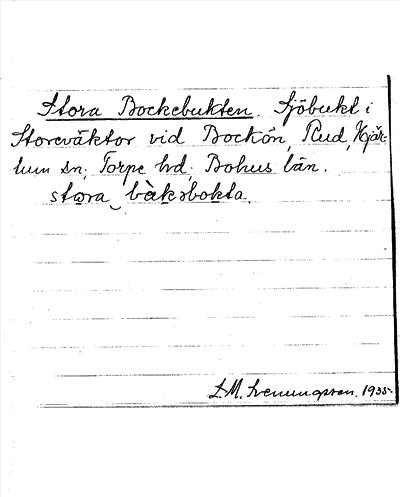 Stora Bockebukten. Sjöbukt i
Storeväktor vid Bockön, Rud, Hjär-
tum sn; Torpe hd; Bohus län.
stora bàksbokta.
L.M. Svenungsson. 1935.